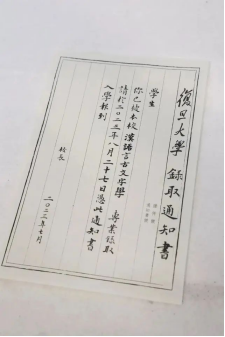 復旦大學 錄取通知書
學生
你已被本校漢語言古文字學 專業錄取
請於二〇二三年八月二十七日憑此通知書
入學報到
校長
二〇二三年七月